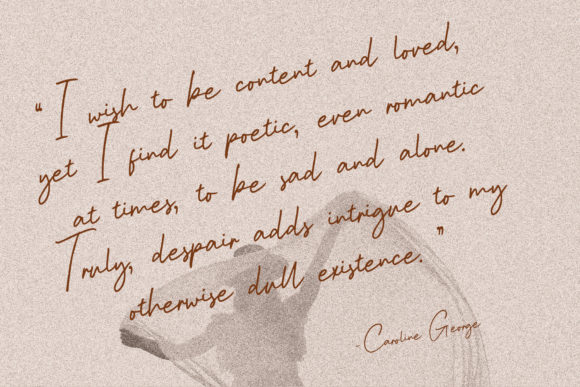 “ I wish to be content and loved,
yet I find it poetic, even romantic
at times, to be sad and alone.
Truly, despair adds intrigue to my
otherwise dull existence. ”
- Caroline George